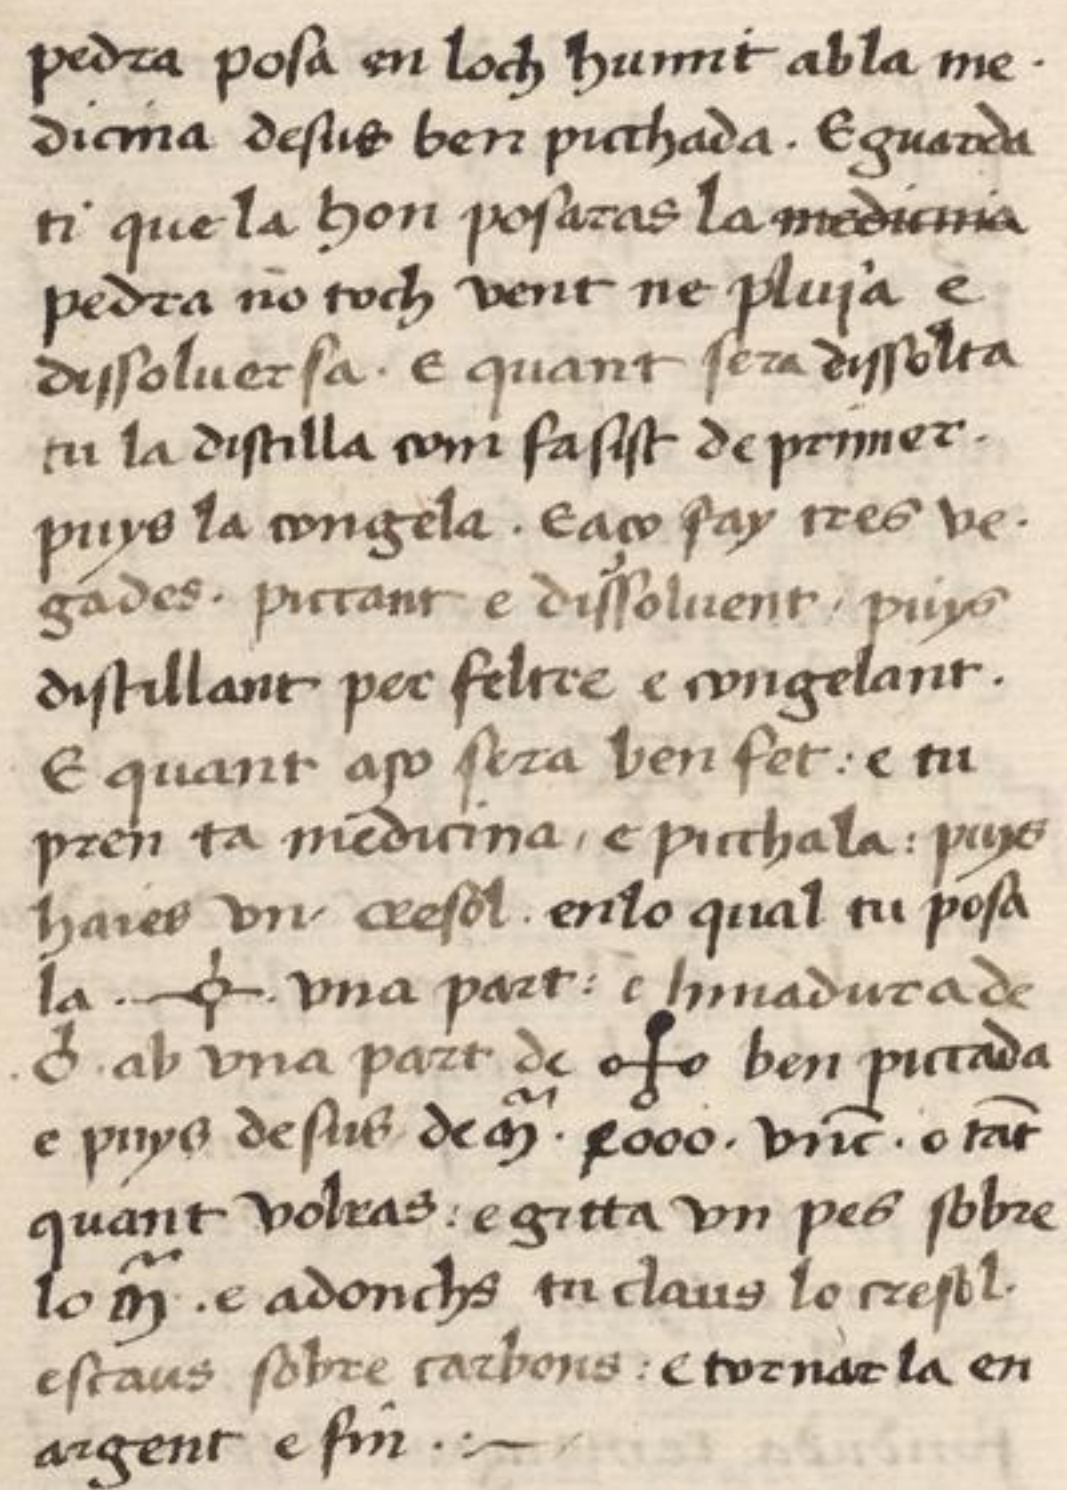 pedra posa en loch humit abla me·
dicina desus ben picchada. E guarda
ti que la hon posaras la medicina
pedra nō toch vent ne pluja e
dissoluer sa. E quant sera dissolta
tu la distilla com fasist de primer.
puys la congela. E aço fay tres ve·
gades. piccant e dissoluent, puys
distillant per feltre e congelant.
E quant aço sera ben fet: e tu
pren ta medicina, e picchala: puys
haies vn cresol. enlo qual tu posa
la . vna part: e
. ab vna part de ben piccada
e puys desus de . vnc̄. o tāt
quant volras: e gitta vn pes sobre
lo m̃. e adonchs tu claus lo cresol.
estaus sobre carbons: e tornar la en
argent e fin.